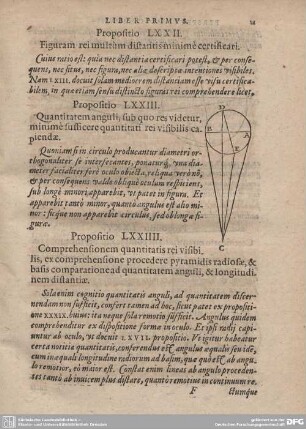 LIBER PRIMVS. 21
Propositio LXXII.
Figuram rei multum distantis minime certificari.
Cuius ratio est: quia nec distantia certificari potest, & per conse-
quens, nec situs, nec figura, nec aliæ descriptæ intentiones visibiles.
Nam LXIII. docuit solam mediocrem distantiam esse visu certifica-
bilem, in qua etiam sensu distincto figuras rei comprehendere licet.
Propositio LXXIII.
Quantitatem anguli, sub quo res videtur,
minime sufficere quantitati rei visibilis ca-
piendæ.
Quoniam si in circulo producantur diametri or-
thogonaliter se intersecantes, ponaturq́,
facialiter fere oculo obiecta, reliqua vero
& per consequens valde oblique oculum respiciens,
sub longe minori apparebit, ut patet in figura. Et
apparebit tanto minor, quanto angulus est alio mi-
nor: sicque non apparebit circulus, sed oblonga fi-
gura.
D
B
A
E
C
Propositio LXXIIII.
Comprehensionem quantitatis rei visibi-
lis, ex comprehensione procedere pyramidis radiosæ, &
basis comparatione ad quantitatem anguli, & longitudi-
nem distantiæ.
Sola enim cognitio quantitatis anguli, ad quantitatem discer-
nendam non sufficit, confert tamen ad hoc, sicut patet ex propositi-
one XXXIX. huius: ita neque sola remotio sufficit. Angulus quidem
comprehenditur ex dispositione formæ in oculo. Et ipsi radij capi-
untur ab oculo, ut docuit LXVII. propositio. Visigitur habeatur
certa notitia quantitatis, conferendus est angulus
cum inæquali longitudine radiorum ad basim, quæ
remotior, eo maior est. Constat enim lineas ab angulo proceden-
tes tanto ab invicem plus distare, quanto remotius in continuum re-
F ctumque